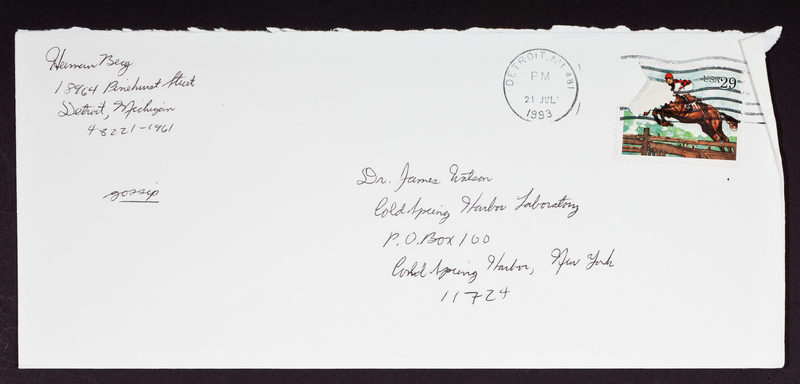 Herman Berg
18964 Pinehurst Street
Detroit, Michigan
48221-1961
gossip
DETROIT, MI 481
PM
21 JUL
1993
USA 29
Dr. James Watson
Cold Spring Harbor Laboratory
P.O. Box 100
Cold Spring Harbor, New York
11724